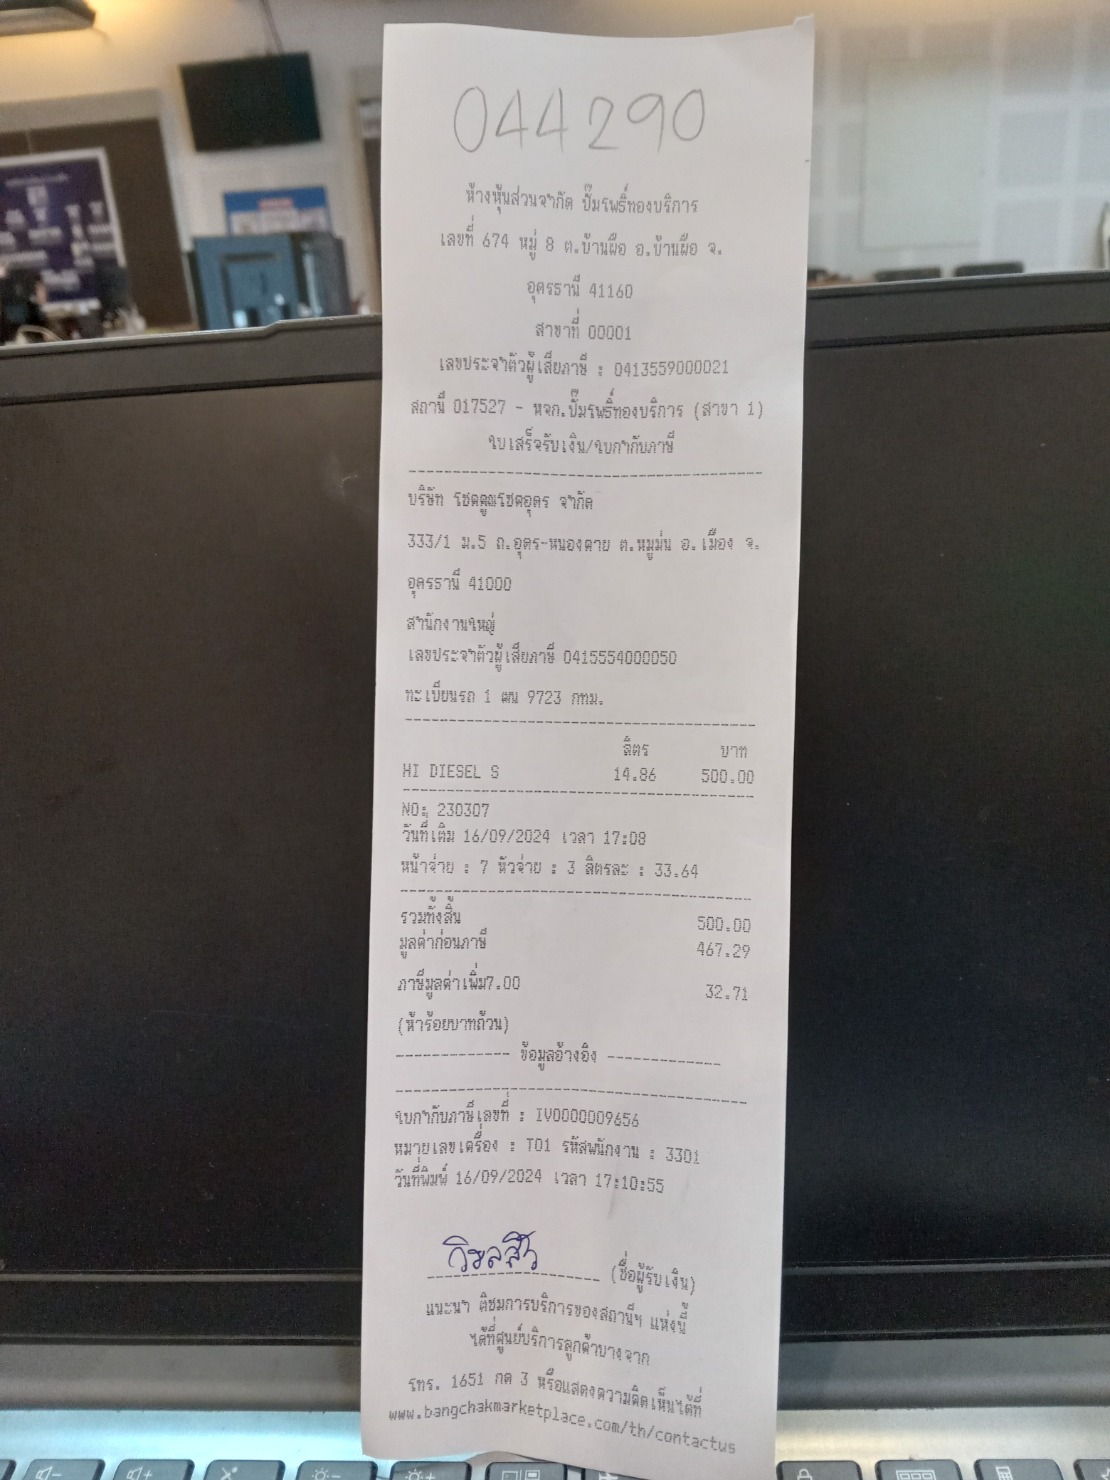 044290
ห้างหุ้นส่วนจำกัด ปั๊มรพธิ์ทองบริการ
เลขที่ 674 หมู่ 8 ต.บ้านผือ อ.บ้านผือ จ.
อุดรธานี 41160
สาขาที่ 00001
เลขประจำตัวผู้เสียภาษี : 0413559000021
สถานี 017527 - หจก.ปั๊มรพธิ์ทองบริการ (สาขา 1)
ใบเสร็จรับเงิน/ใบกำกับภาษี
บริษัท โชคคูณโชคอุดร จำกัด
333/1 ม.5 ถ.อุดร-หนองคาย ต.หมูม่น อ.เมือง จ.
อุดรธานี 41000
สำนักงานใหญ่
เลขประจำตัวผู้เสียภาษี 0415554000050
ทะเบียนรถ 1 ฒน 9723 กทม.
ลิตร บาท
HI DIESEL S 14.86 500.00
NO: 230307
วันที่เติม 16/09/2024 เวลา 17:08
หน้าจ่าย : 7 หัวจ่าย : 3 ลิตรละ : 33.64
รวมทั้งสิ้น 500.00
มูลค่าก่อนภาษี 467.29
ภาษีมูลค่าเพิ่ม7.00 32.71
(ห้าร้อยบาทถ้วน)
------------ ข้อมูลอ้างอิง ------------
ใบกำกับภาษีเลขที่ : IV0000009656
หมายเลขเครื่อง : T01 รหัสพนักงาน : 3301
วันที่พิมพ์ 16/09/2024 เวลา 17:10:55
(ชื่อผู้รับเงิน)
แนะนำ ติชมการบริการของสถานีฯ แห่งนี้
ได้ที่ศูนย์บริการลูกค้าบางจาก
โทร. 1651 กด 3 หรือแสดงความคิดเห็นได้ที่
www.bangchakmarketplace.com/th/contactus